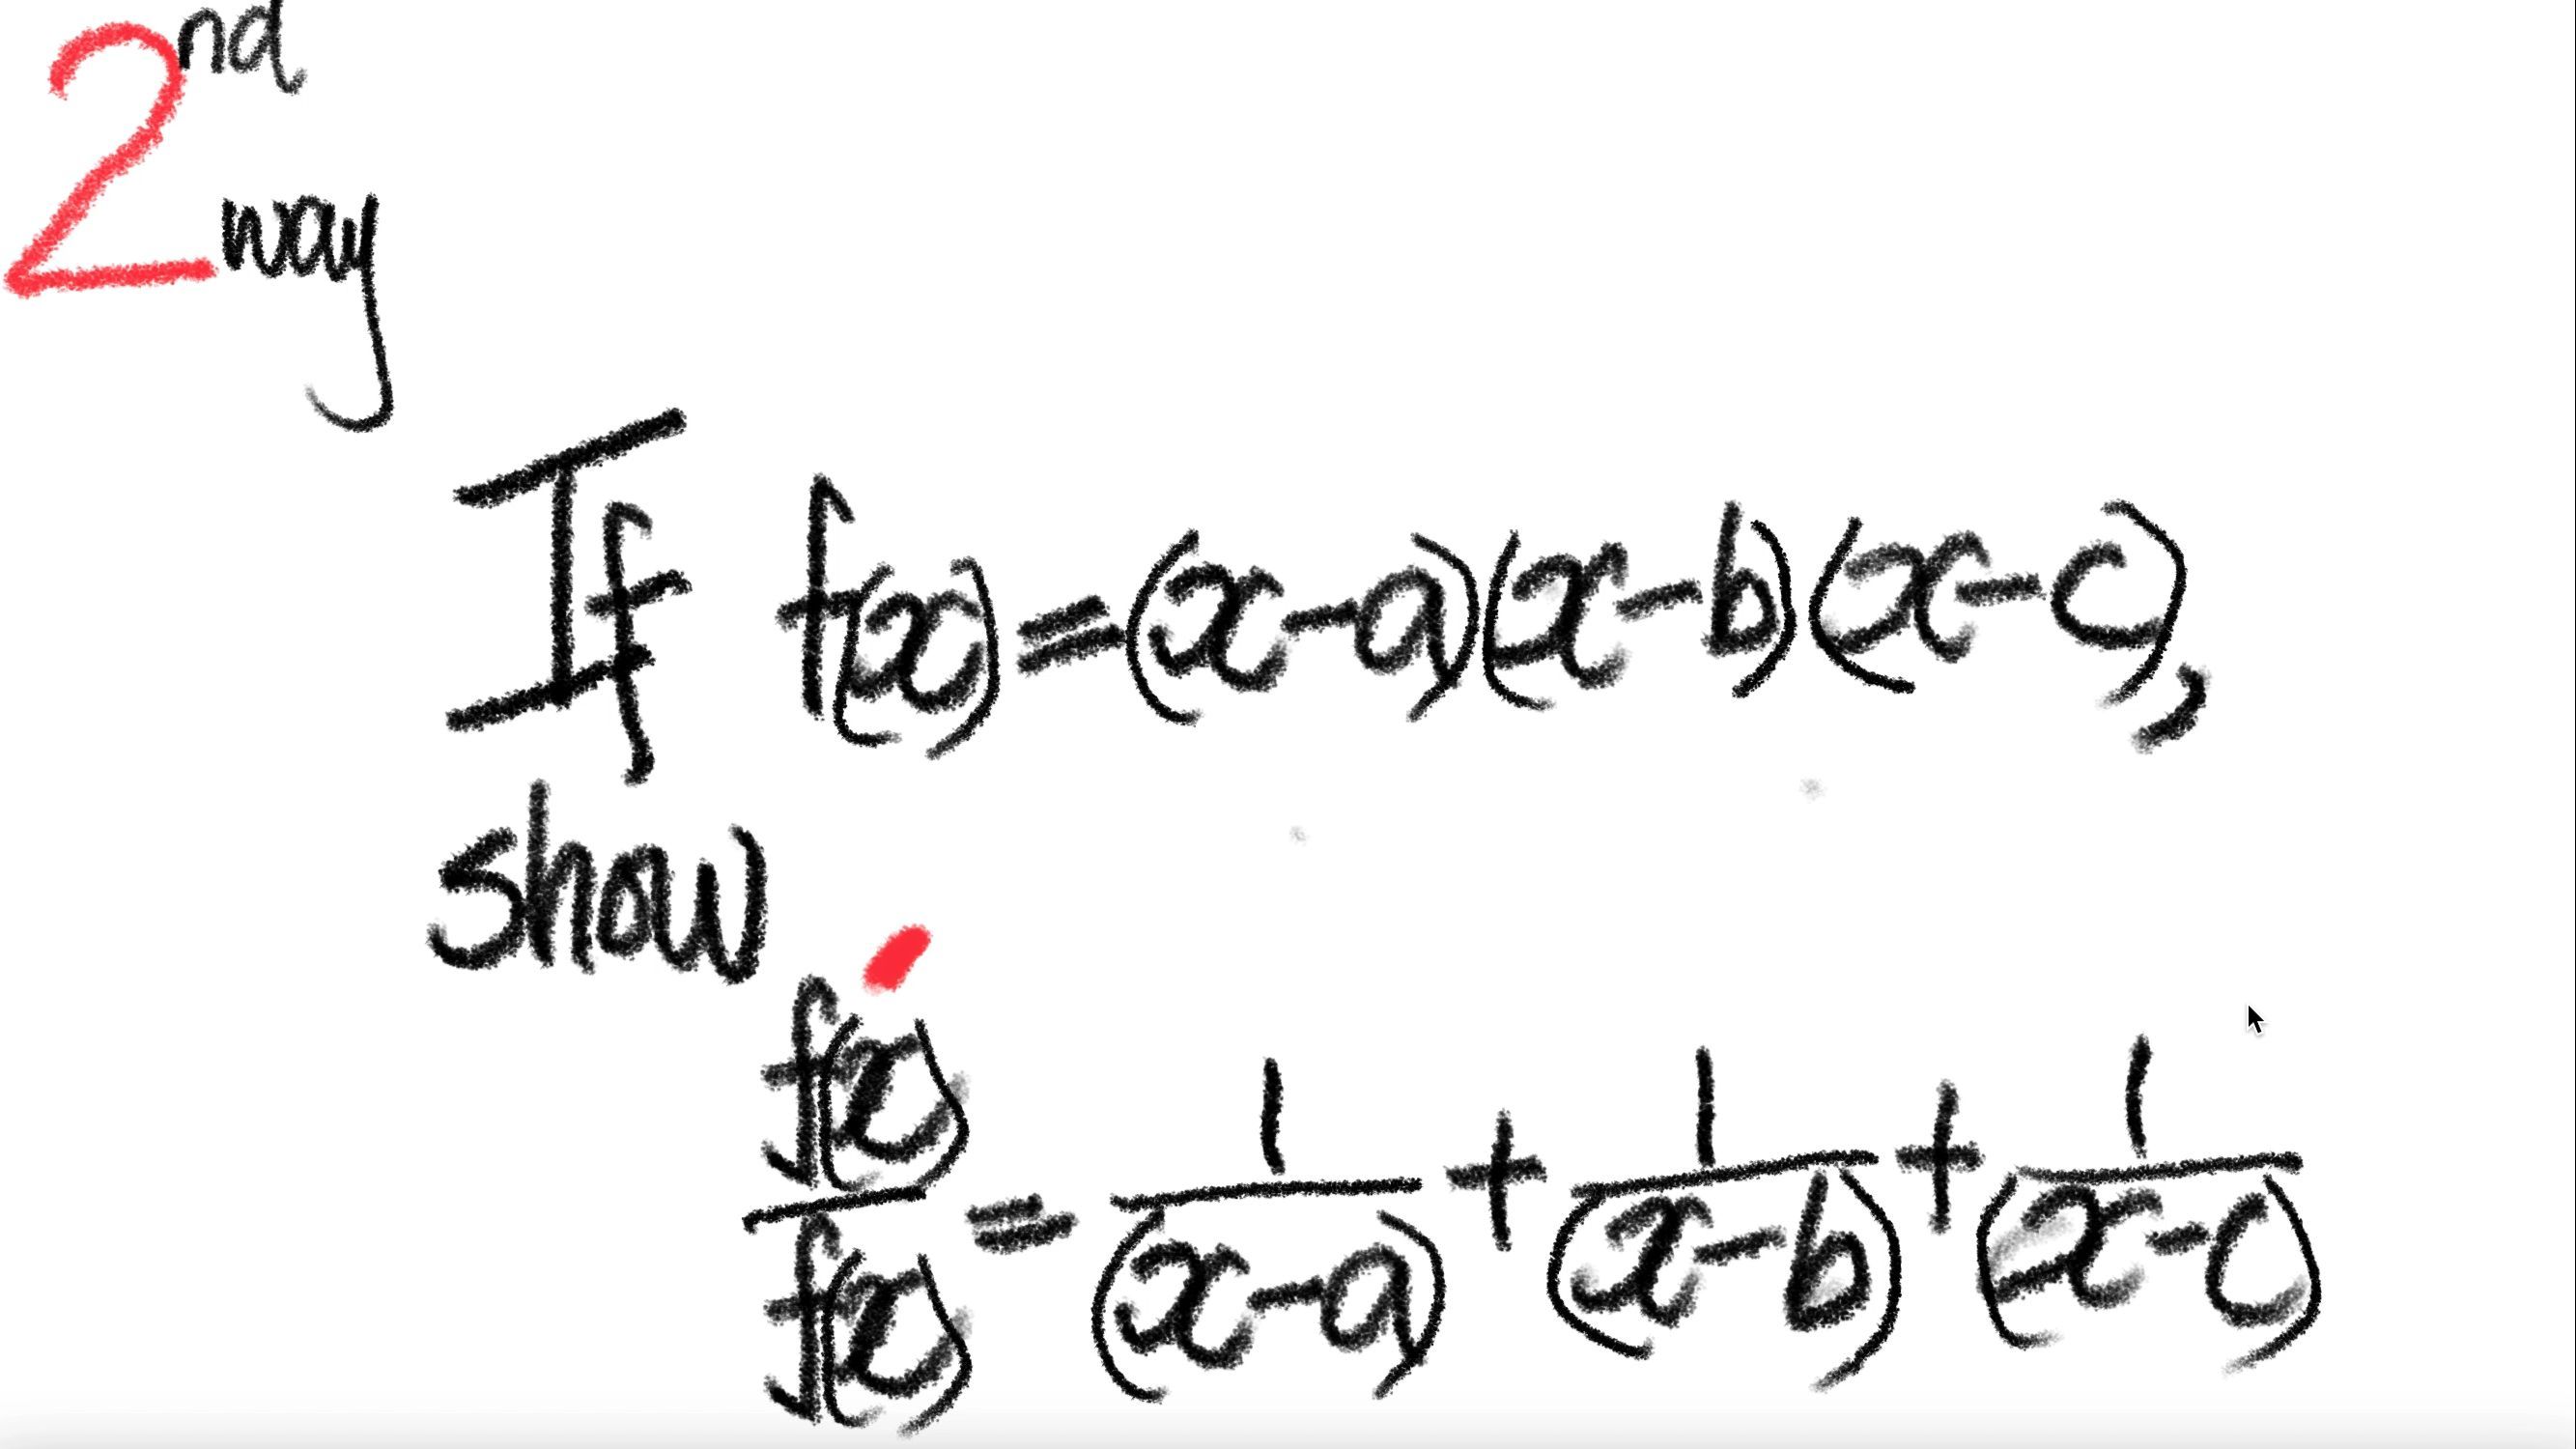 2nd way
If f(x)=(x-a)(x-b)(x-c),
show
f'(x)/f(x) = 1/(x-a) + 1/(x-b) + 1/(x-c)